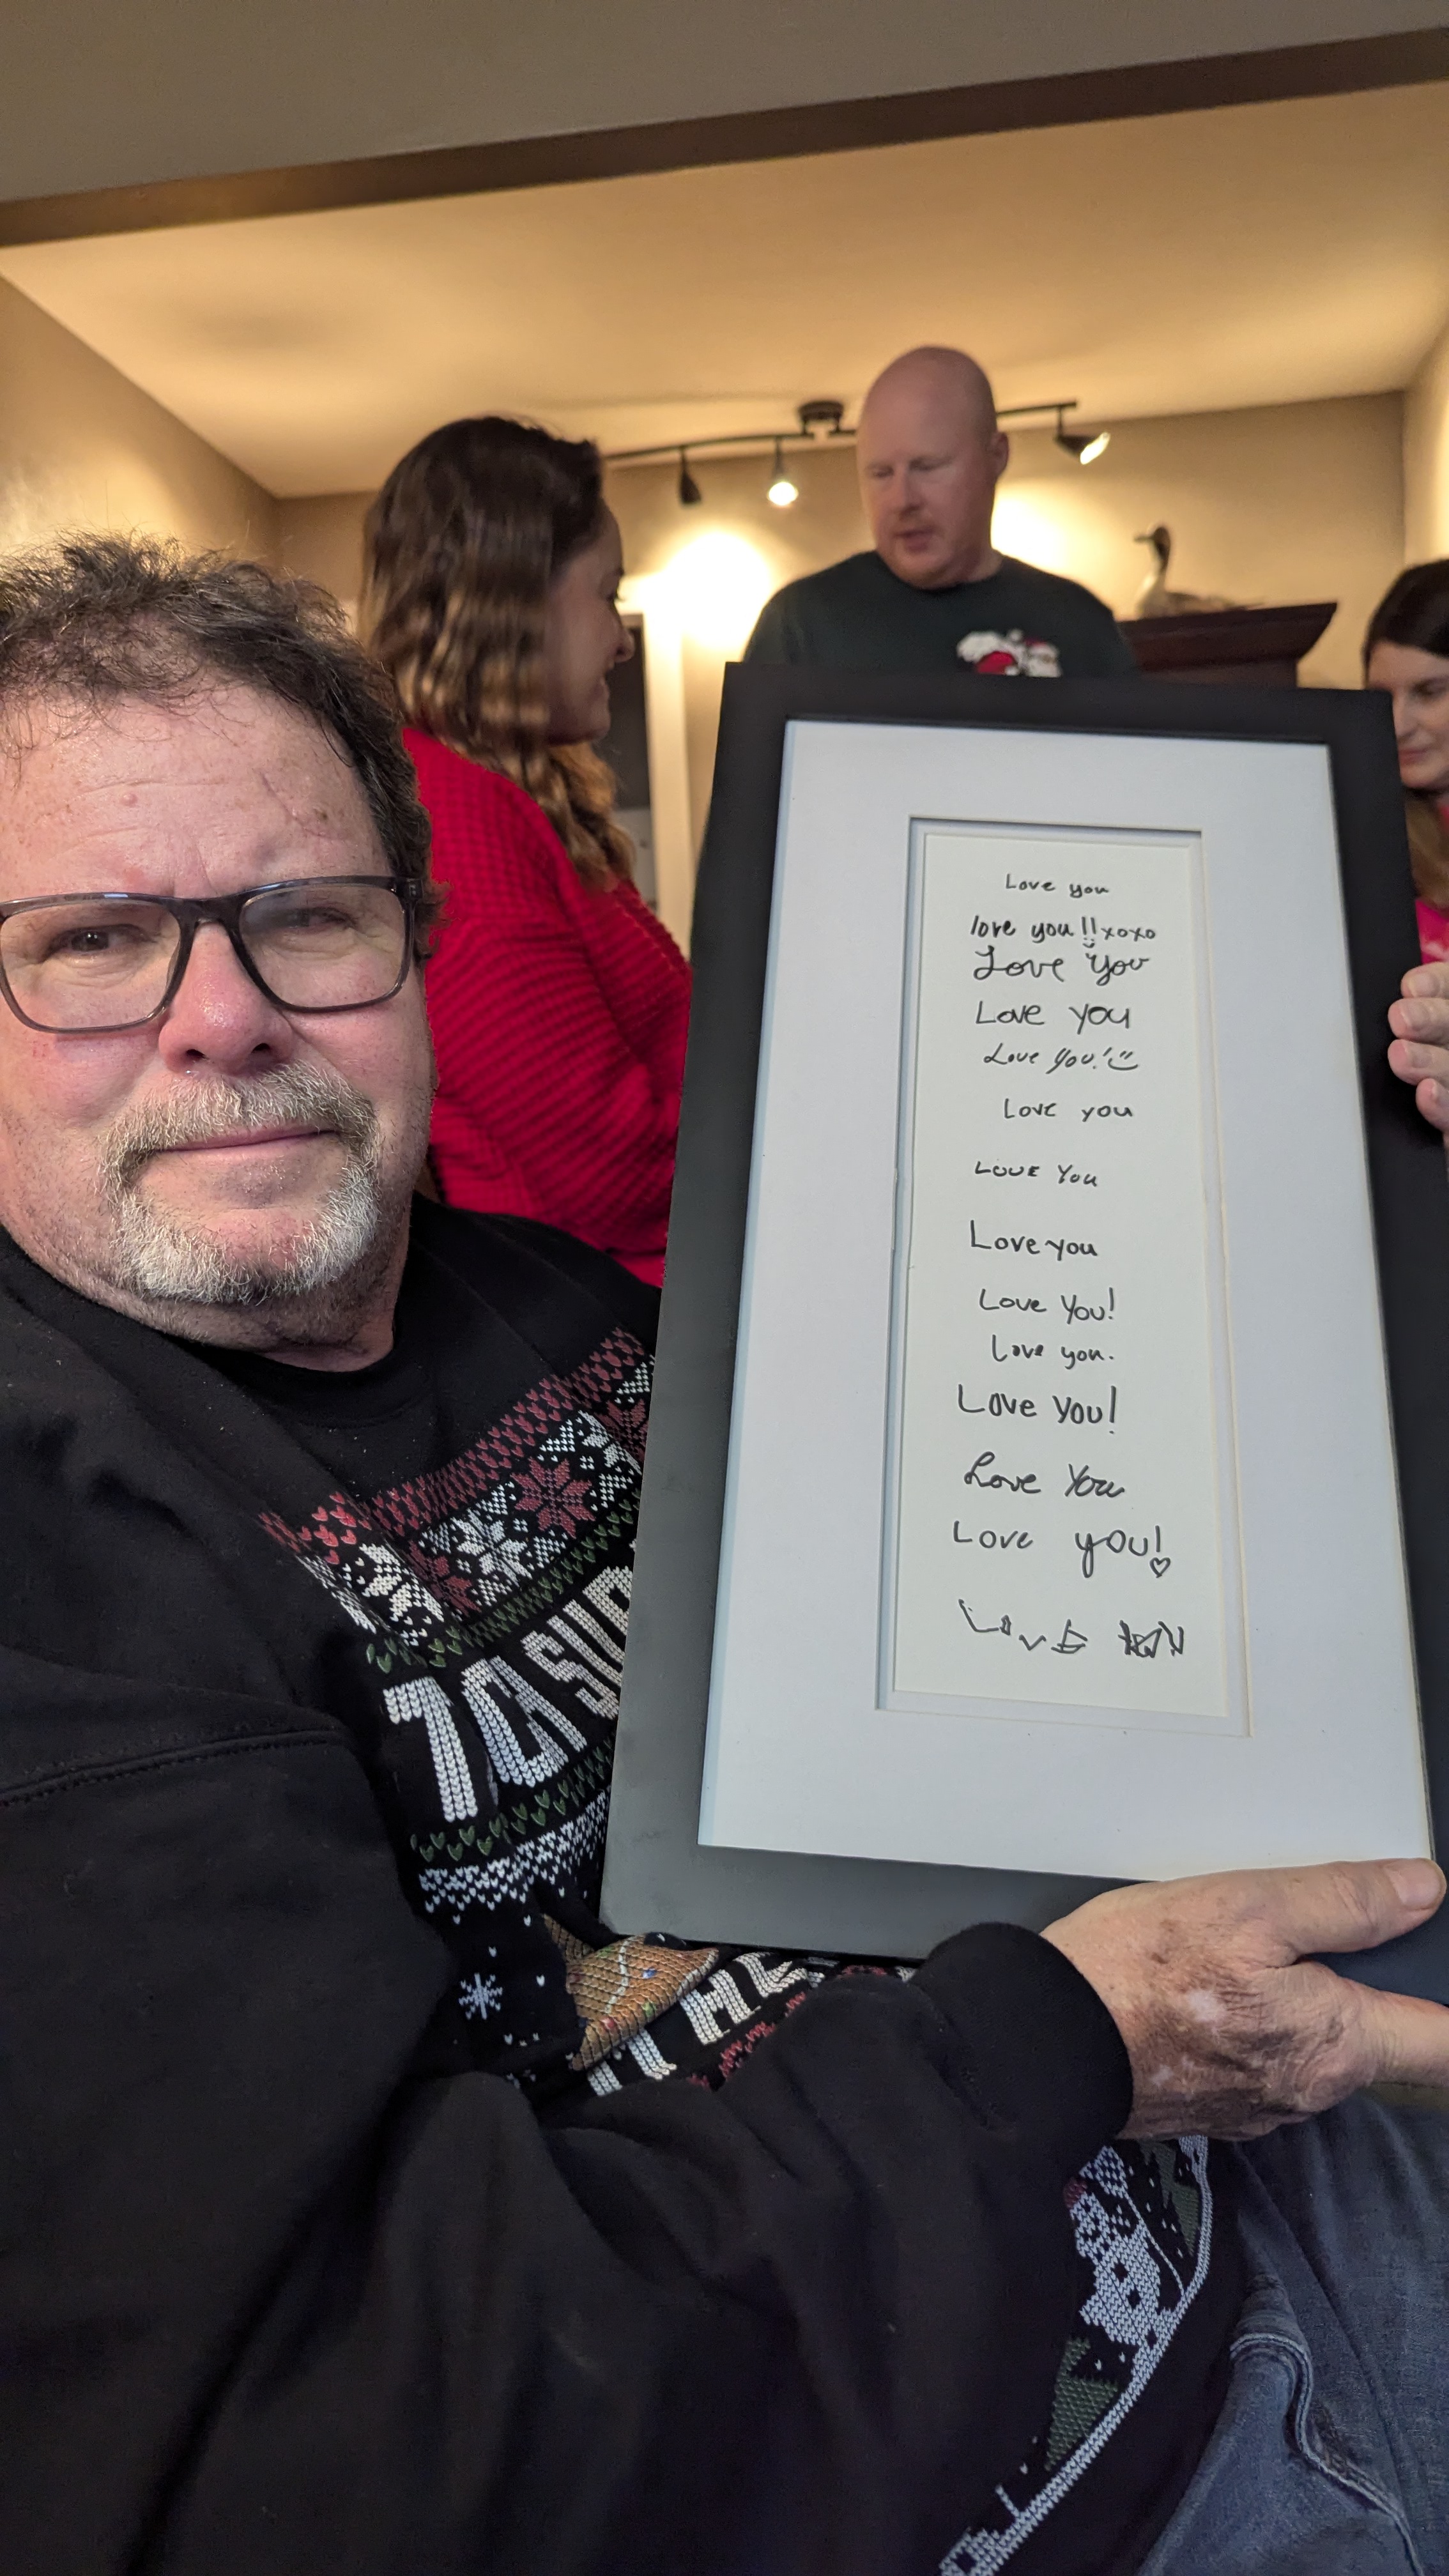 Love you
love you!! xoxo
Love You
Love you
Love you! :)
Love you
LOVE You
Love you
Love You!
Love you.
Love you!
Love You
Love you! ♡
LOVE